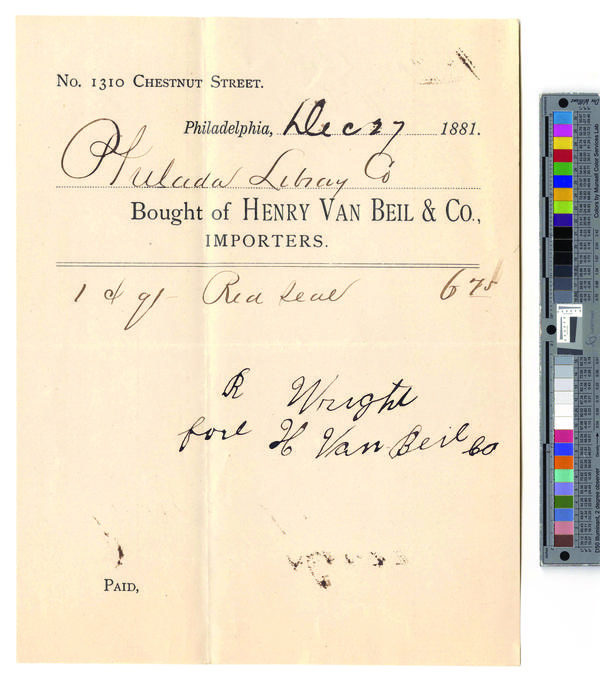 No. 1310 Chestnut Street.
Philadelphia, Dec 27 1881.
Philada Libray Co
Bought of Henry Van Beil & Co.,
IMPORTERS.
1 d qr Red Seal 6 75
R Wright
for H Van Beil Co
Paid,